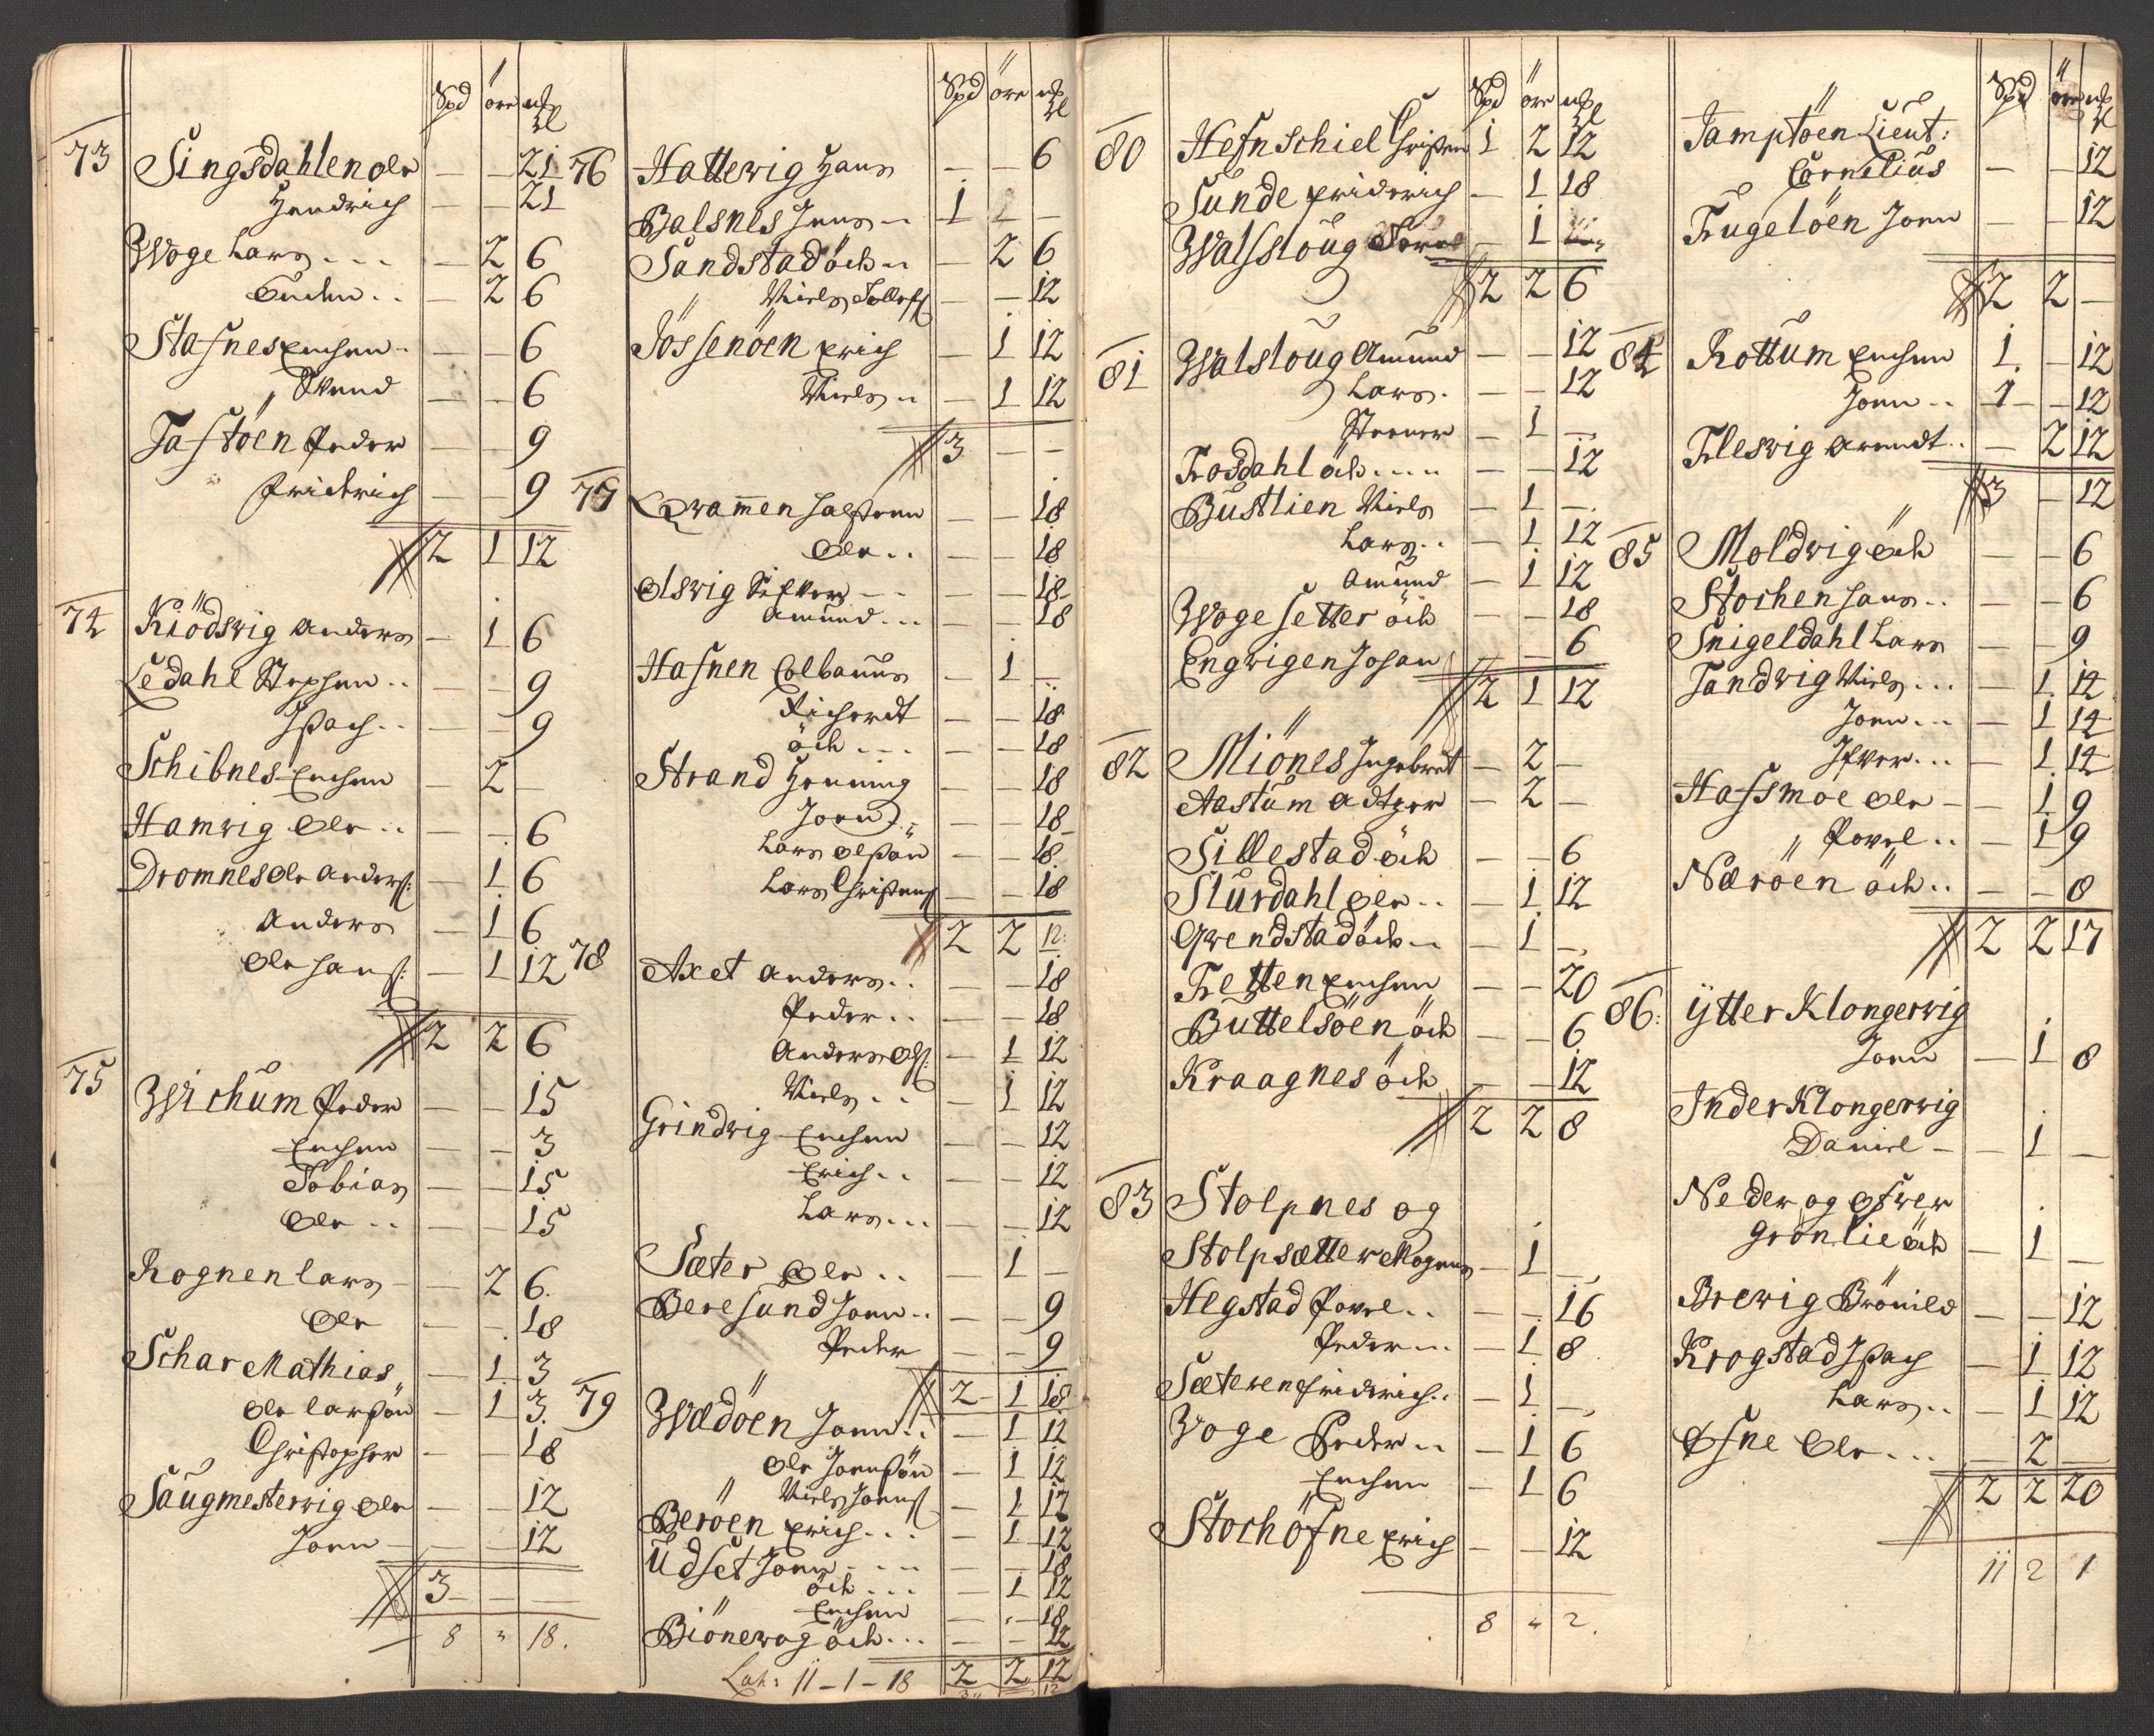 Spd öre ml
73 Singsdahlen Ole — — 21
Hendrich — — 21
Woge Lars — 2 6
Enchen — 2 6
Stafnes Enchen — — 6
— — 6
Tastöen Peder — — 9
Friderich — — 9
2 1 12
74 Kiödswig Anders — 1 6
Ledahl Stephen — — 9
— — 9
Schibnes Enchen — 2 —
Hamwig Ole — — 6
Dromnes Ole Anders: — 1 6
Anders — 1 6
Ole Hans: — 1 12
2 2 6
75 Wichum Peder — — 15
Enchen — — 3
Tobias — — 15
Ole — — 15
Rognen Lars — 2 6
Ole — — 18
Schar Mathias — 1 3
Ole Larsön — 1 3
Christopher — — 18
Saugmesterwig Ole — — 12
Jonn — — 12
3 — —
8 " 18.
Spd öre ml
76 Hattewig Hans — — 6
Balsnes Jens 1 —
Sandstad öch — 2 6
Niels Tollefs — — 12
Jössenöen Erich — 1 12
Niels — 1 12
3 — —
77 Qwamen Halsten — — 18
Ole — — 18
Olswig Sifver — — 18
Amund — — 18
Hafnen Colbanus — 1 —
Richardt — — 18
öch — — 18
Strand Henning — — 18
Jonn — — 18
Lars Olsön — — 18
Lars Christens — — 18
2 2 12
78 Axet Anders — — 18
Peder — — 18
Anders Ols: — 1 12
Niels — 1 12
Grindwig Enchen — — 12
Erich — — 12
Lars — — 12
Sæter Ole — 1 —
Beresund Jonn — — 9
Peder — — 9
2 1 18
79 Wædöen Jonn — 1 12
Ole Jonnsön — 1 12
Niels Jonns — 1 12
Beröen Erich — 1 12
Udset Jonn — — 18
öch — 1 12
Enchen — — 18
Biönewog öch — — 12
Lat: 11 – 1 – 18 2 2 12
Spd öre ml
80 Hefnschiel Christen 1 2 12
Sunde Friderich — 1 18
Walsloug — 1
2 2 6
81 Walsloug Amund — — 12
Lars — — 12
Steener — 1 —
Frosdahl öch — — 12
Bustlien Niels — 1 —
Lars — 1 12
Amund — 1 12
Woge setter öch — — 18
Engwigen Johan — — 6
2 1 12
82 Miönes Ingebret — 2 —
Aastum — 2 —
Sillestad öch — — 6
Slurdahl Ole — 1 12
Qwendstad öch — 1 —
Fretten Enchen — — 20
Buttelsöen öch — — 6
Kraagnes öch — — 12
2 2 8
83 Stolpnes og
Stolpsætter Mogens — 1 —
Hegstad Povel — — 16
Peder — 1 8
Sæteren Friderich — 1 —
Woge Peder — 1 6
Enchen — 1 6
Storhöfne Erich — — 12
8 " 2.
Spd öre ml
Jamptöen Lieut:
Cornelius — — 12
Fugelöen Jonn — — 12
2 2 —
84 Rottum Enchen 1 — 12
Jonn 1 — 12
Fleswig Arendt — 2 12
3 — 12
85 Moldwig öch — — 6
Stochen Hans — — 6
Snigeldahl Lars — — 9
Sandwig Niels — 1 14
Jonn — 1 14
Ifver — 1 14
Hafsmoe Ole — 1 9
Povel — 1 9
Næröen öch — — 8
2 2 17
86: Ytter Klongerwig
Jonn — 1 8
Inder Klongerwig
Daniel — 1 —
Neder og Ofwer
Grönlie öch — 1 —
Brewig Brönild — — 12
Krogstad — 1 12
Lars — 1 12
Øfne Ole — 2 —
2 2 20
11 2 1